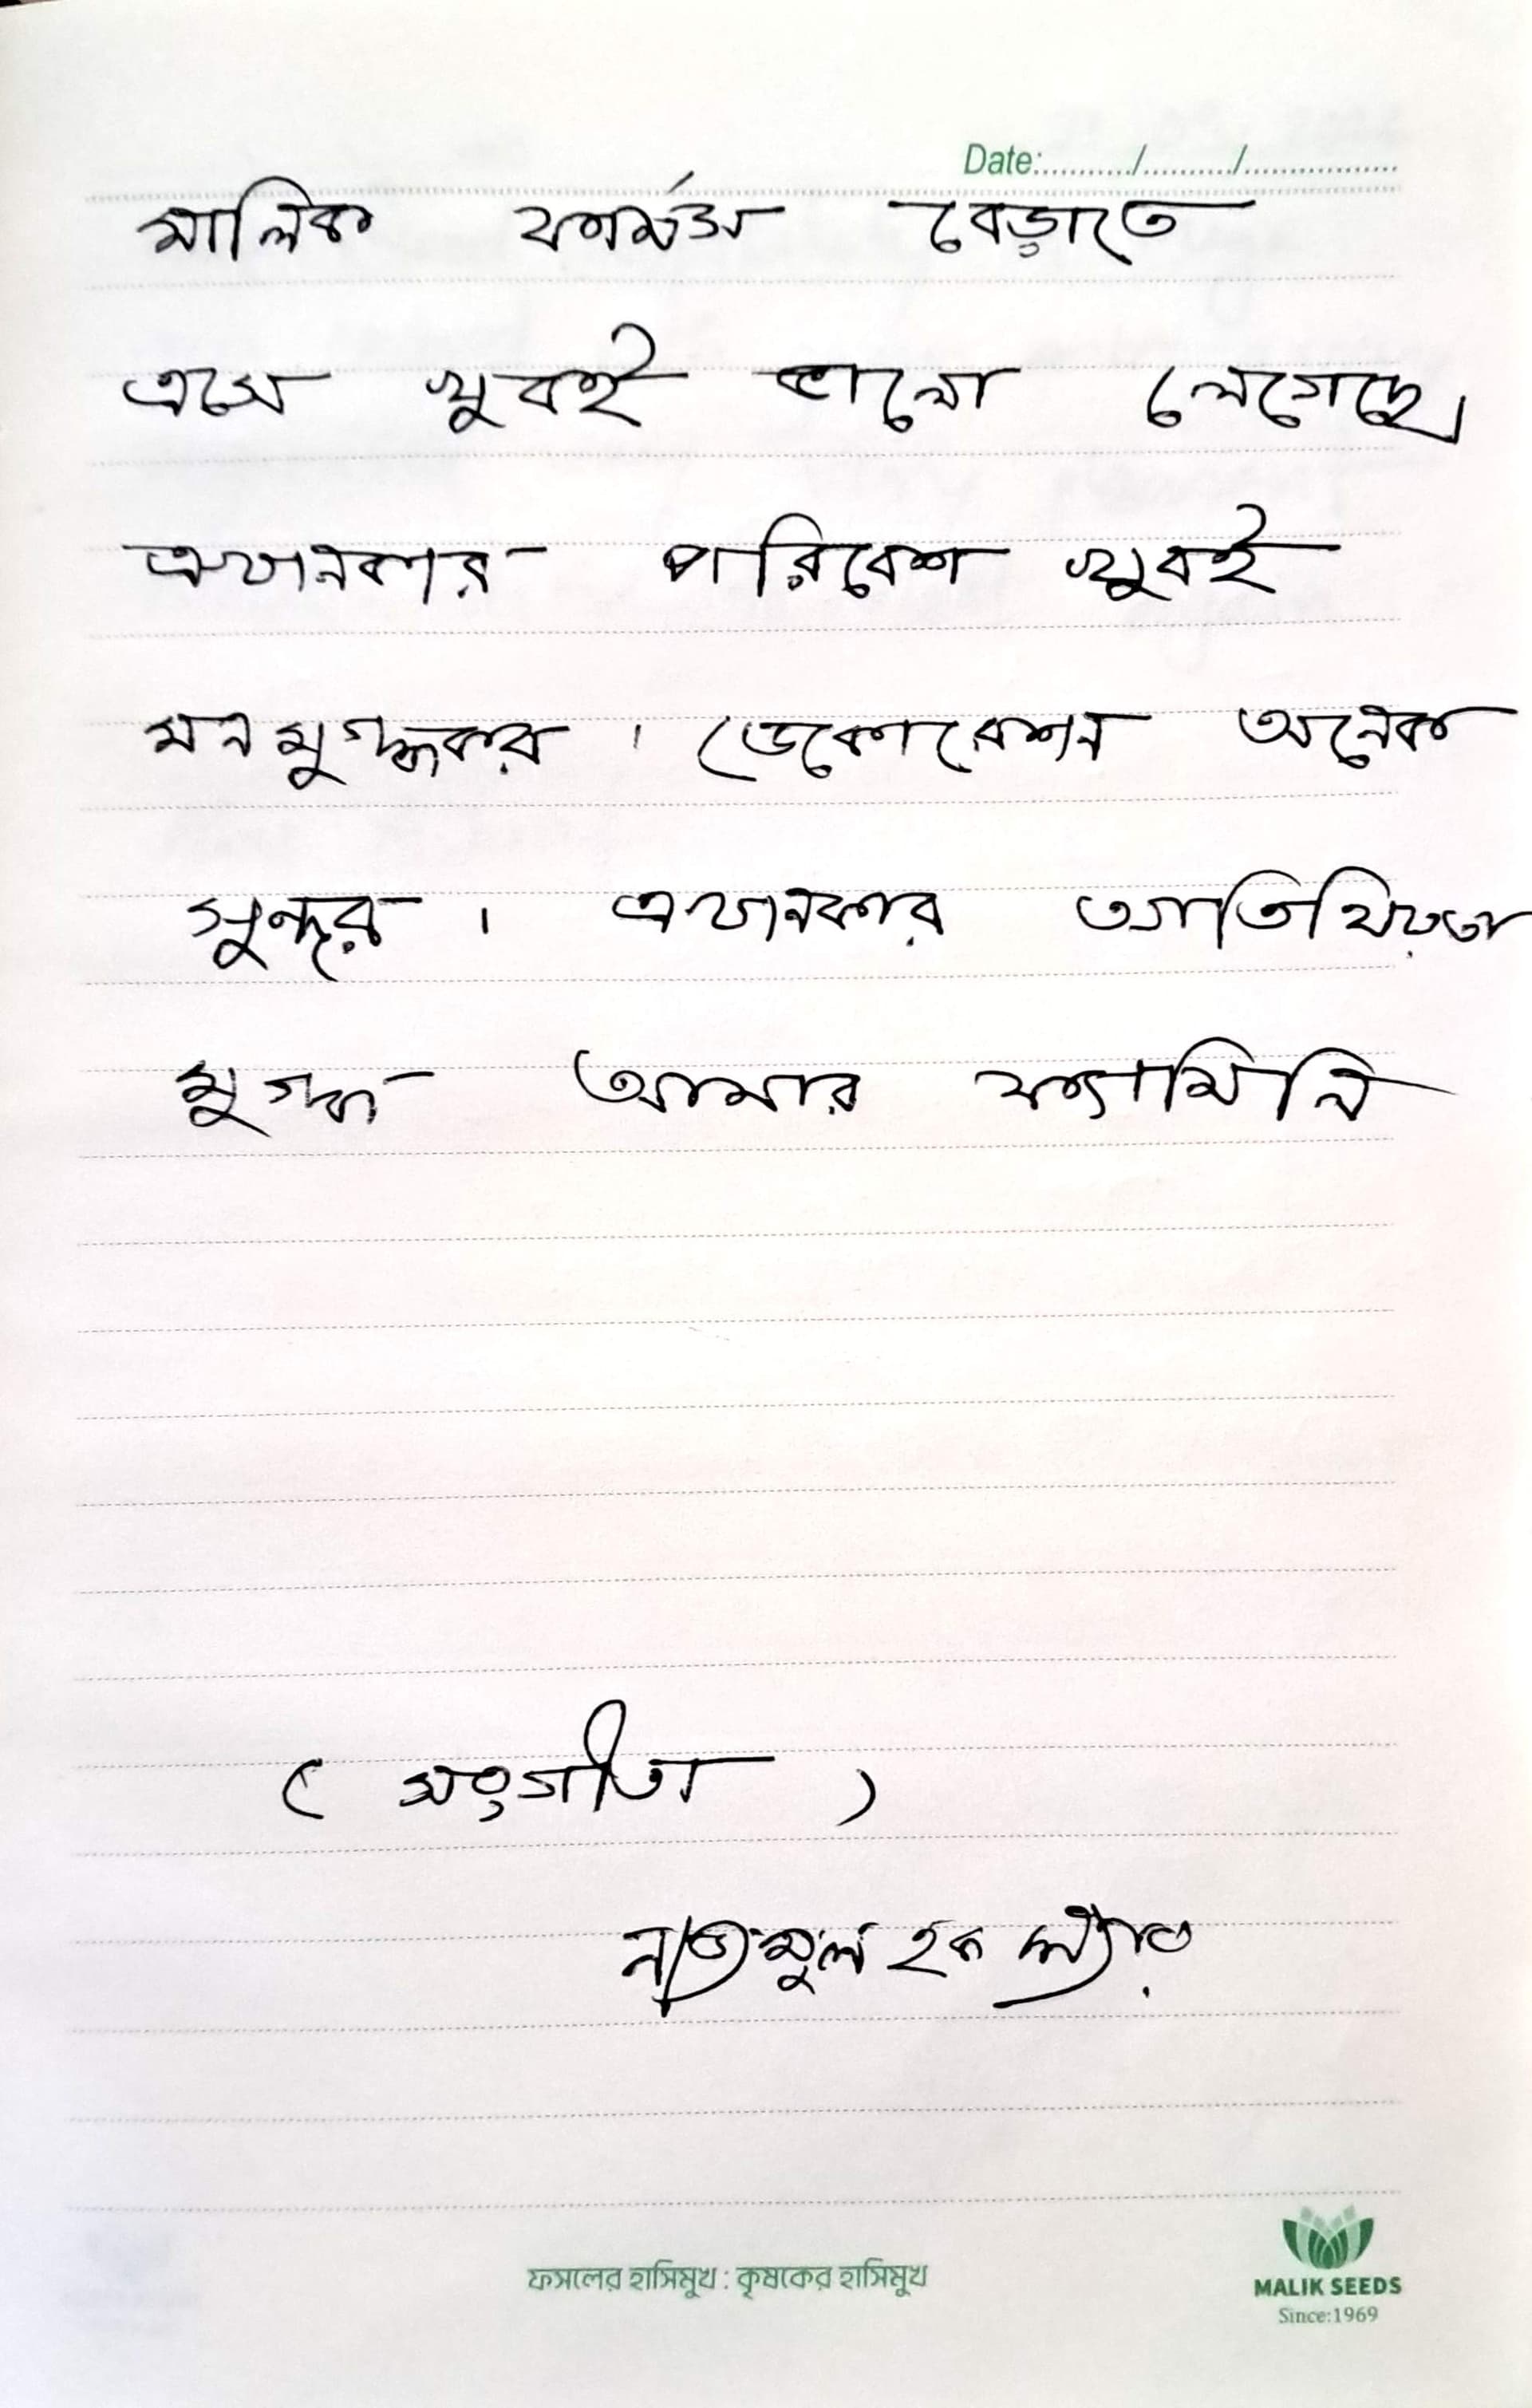 Date:.........../........../.................
মালিক ফার্মস বেড়াতে
এসে খুবই ভালো লেগেছে।
এখানকার পরিবেশ খুবই
মনমুগ্ধকর। ডেকোরেশন অনেক
সুন্দর। এখানকার আতিথিয়তা
মুগ্ধ আমার ফ্যামিলি
( সংগীতা )
নাজমুল হক
ফসলের হাসিমুখ : কৃষকের হাসিমুখ
MALIK SEEDS
Since:1969